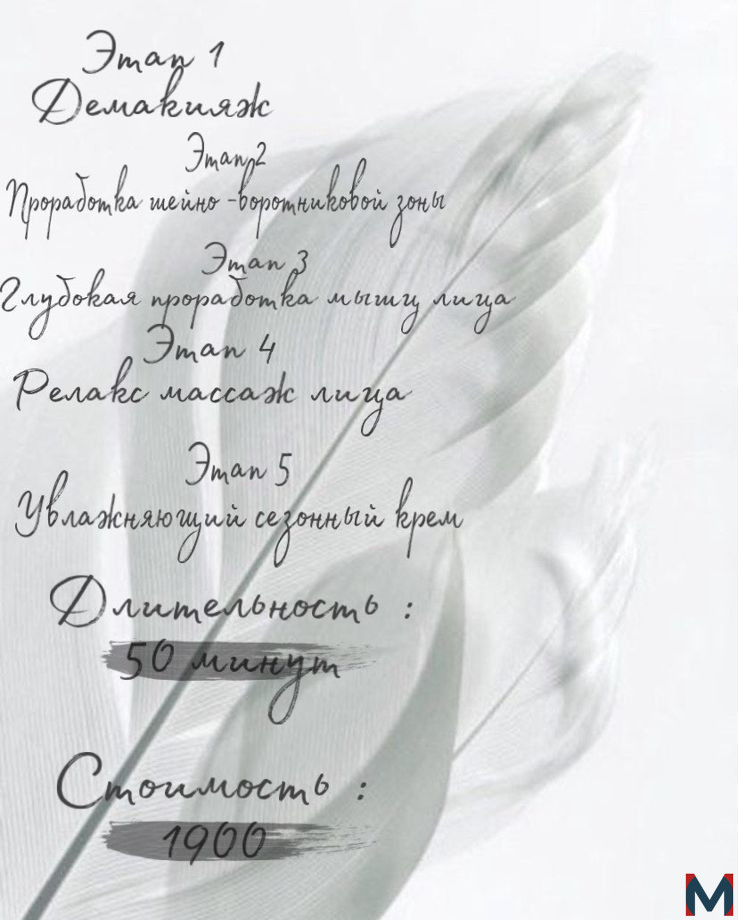 Этап 1
Демакияж
Этап 2
Проработка шейно-воротниковой зоны
Этап 3
Глубокая проработка мышц лица
Этап 4
Релакс массаж лица
Этап 5
Увлажняющий сезонный крем
Длительность :
50 минут
Стоимость :
1900
M